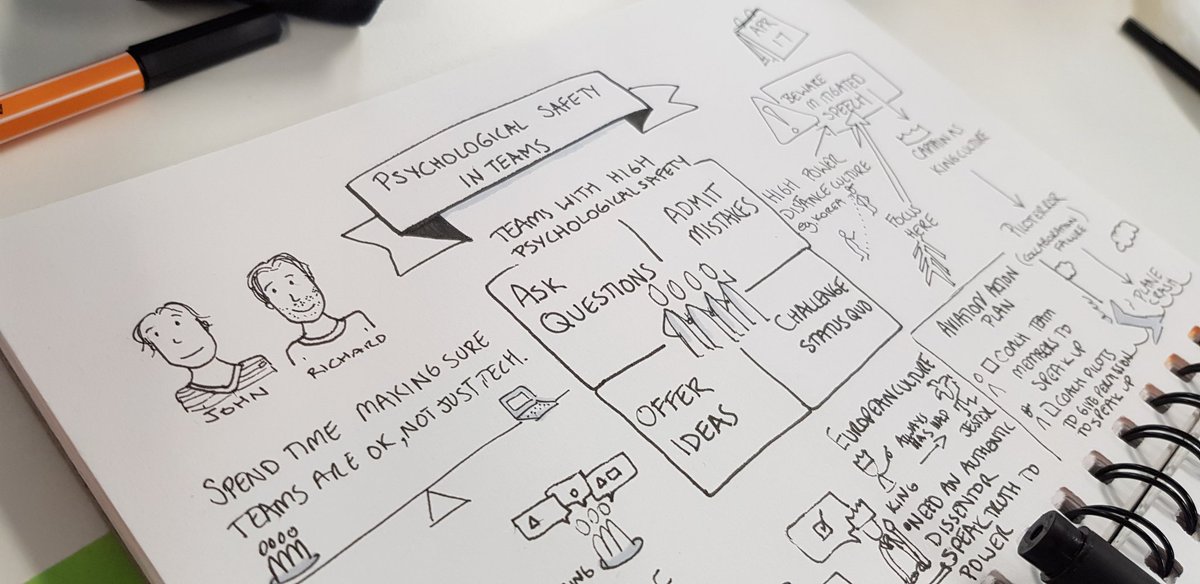 APR
17
PSYCHOLOGICAL SAFETY
IN TEAMS
JOHN
RICHARD
SPEND TIME MAKING SURE
TEAMS ARE OK, NOT JUST TECH.
TEAMS WITH HIGH
PSYCHOLOGICAL SAFETY
ASK
QUESTIONS
ADMIT
MISTAKES
OFFER
IDEAS
CHALLENGE
STATUS QUO
BEWARE
MITIGATED
SPEECH
HIGH POWER
DISTANCE CULTURE
eg KOREA
FOCUS
HERE
CAPTAIN AS
KING CULTURE
PILOT ERROR
(COLLABORATION
FAILURE
PLANE
CRASH
AVIATION ACTION
PLAN
COACH TEAM
MEMBERS TO
SPEAK UP
COACH PILOTS
TO GIVE PERMISSION
TO SPEAK UP
EUROPEAN CULTURE
ALWAYS
HAS HAD
JESTER
KING
NEED AN AUTHENTIC
DISSENTOR
SPEAK TRUTH TO
POWER